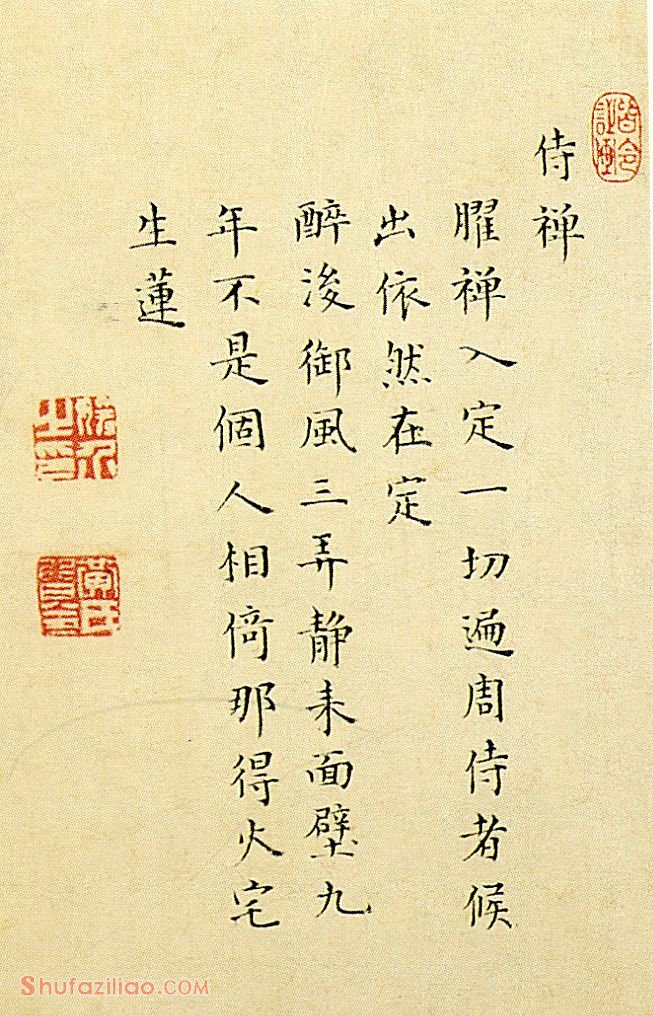 侍禅
臞禅入定一切遍周侍者候
出依然在定
醉後御風三弄静来面壁九
年不是個人相倚那得火宅
生蓮
Shufaziliao.COM